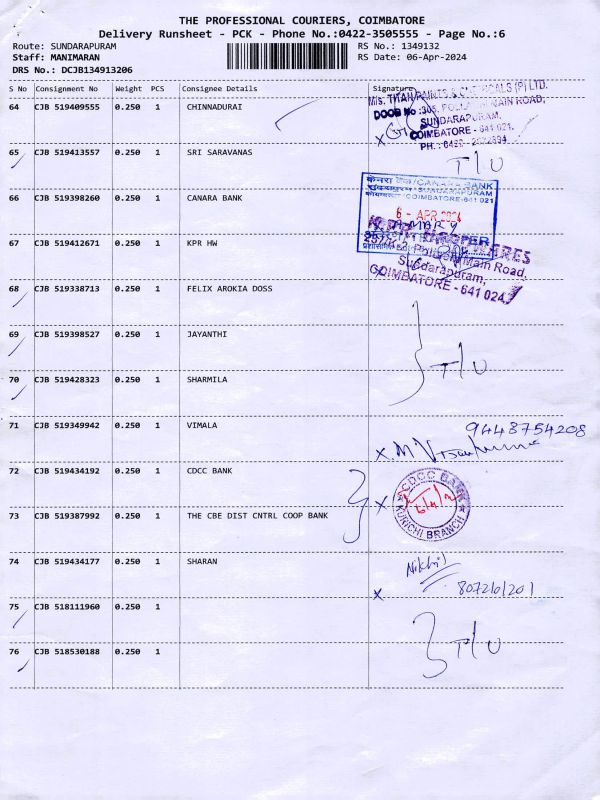 THE PROFESSIONAL COURIERS, COIMBATORE
Delivery Runsheet - PCK - Phone No.:0422-3505555 - Page No.:6
Route: SUNDARAPURAM RS No.: 1349132
Staff: MANIMARAN RS Date: 06-Apr-2024
DRS No.: DCJB134913206
S No Consignment No Weight PCS Consignee Details Signature
64 CJB 519409555 0.250 1 CHINNADURAI
M/s. TITAN PAINTS & CHEMICALS (P) LTD.
DOOR No :305, POLLACHI MAIN ROAD,
SUNDARAPURAM,
COIMBATORE - 641 021.
x
65 CJB 519413557 0.250 1 SRI SARAVANAS T/U
66 CJB 519398260 0.250 1 CANARA BANK
केनरा बैंक/CANARA BANK
SUNDARAPURAM
COIMBATORE-641 021
6 - APR 2024
67 CJB 519412671 0.250 1 KPR HW
Pollachi Main Road,
Sundarapuram,
COIMBATORE - 641 024
68 CJB 519338713 0.250 1 FELIX AROKIA DOSS
69 CJB 519398527 0.250 1 JAYANTHI T/U
70 CJB 519428323 0.250 1 SHARMILA
71 CJB 519349942 0.250 1 VIMALA 9448754208
x M
72 CJB 519434192 0.250 1 CDCC BANK
x CDCC BANK
6/4/2
KURICHI BRANCH
73 CJB 519387992 0.250 1 THE CBE DIST CNTRL COOP BANK
74 CJB 519434177 0.250 1 SHARAN Nikhil
x 8072101201
75 CJB 518111960 0.250 1
T/U
76 CJB 518530188 0.250 1